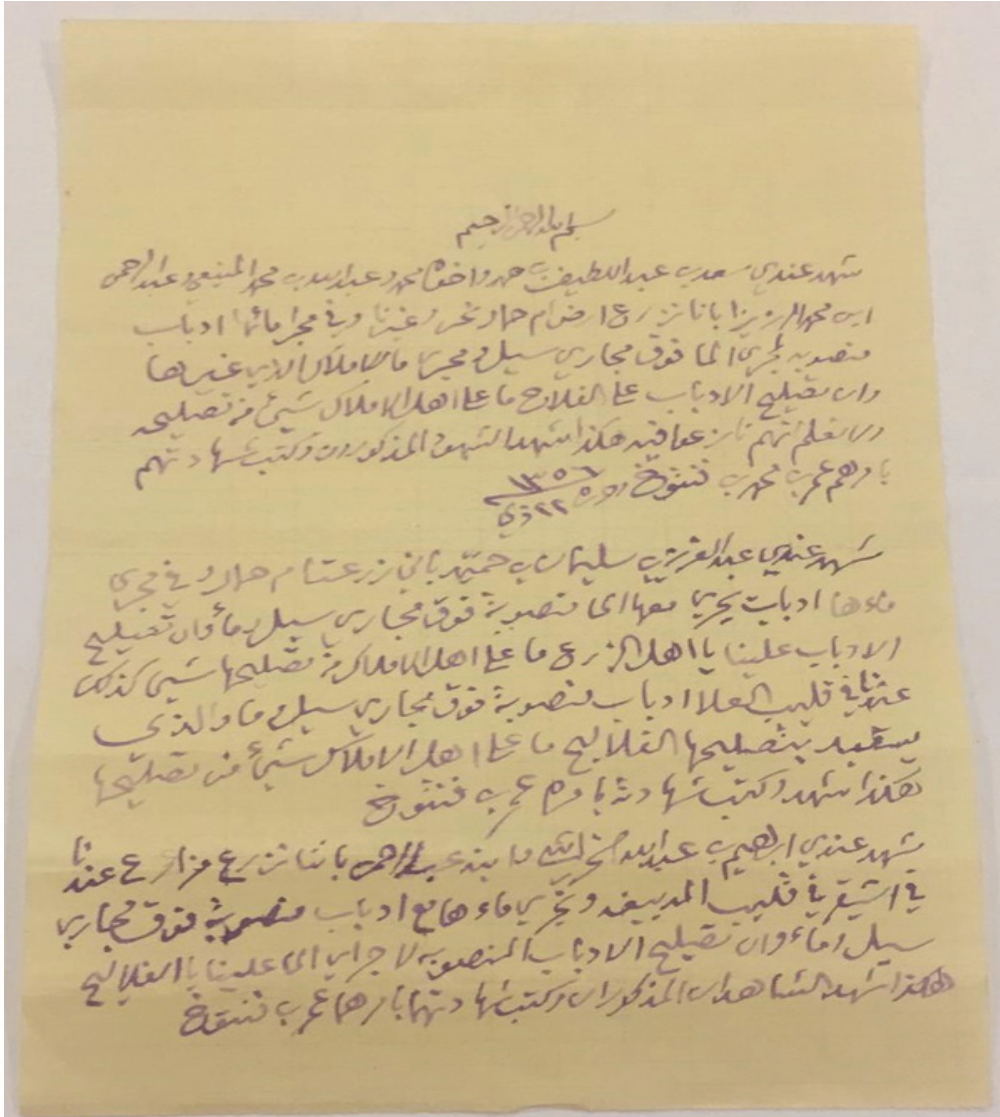 بسم الله الرحمن الرحيم
شهد عندي سعد بن عبداللطيف بن حمد واخوه محمد وعبدالله بن محمد المنيعي وعبدالرحمن
ابن محمد بانا نزرع ارض ام حماد نحن وغيرنا وفي مجرا مائها ادباب
منصوبه لمجرى الما فوق مجاري سيل ومجرا ما لاملاك الذي غيرها
وان تصليح الادباب على الفلاح ما على اهل الاملاك شيئ من تصليحه
ولا نعلم انهم هكذا شهد الشهود المذكورون وكتب شهادتهم
بامرهم عمر بن محمد بن فنتوخ ٢٢ ذي ١٣٥٦
شهد عندي عبدالعزيز بن سليمان بن حميد باني زرعت ام حماد وفي مجرى
ماءها ادباب يجري معها الما منصوبة فوق مجاري سيل وماء وان تصليح
الادباب علينا يا اهل الزرع ما على اهل الاملاك من تصليحها شيئ كذلك
عندنا في قليب العلا ادباب منصوبة فوق مجاري سيل وما والذي
بتصليحها الفلاليح ما على اهل الاملاك شيئا من تصليحها
هكذا شهد وكتب شهادته بامره عمر بن فنتوخ
شهد عندي ابراهيم بن عبدالله الخراشي عبدالرحمن باننا نزرع مزارع عندنا
في الشيقر في قليب المديبغه ونجري ماءها مع ادباب منصوبة فوق مجاري
سيل وماء وان تصليح الادباب المنصوبه لاجراي الما علينا يا الفلاليح
هكذا شهد الشاهدان المذكوران وكتب شهادتهما بامرهما عمر بن فنتوخ